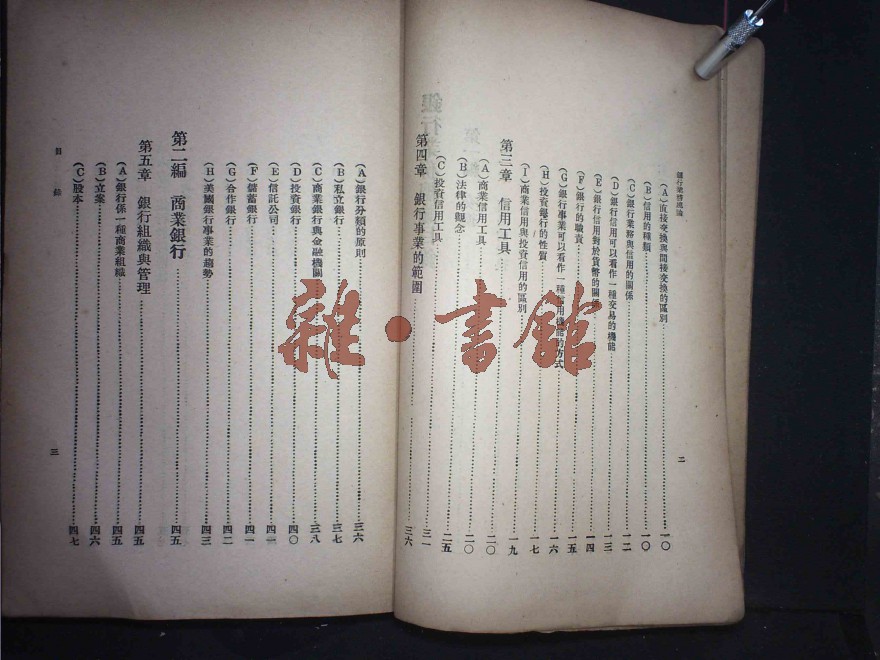 銀行業務概論
(A)直接交換與間接交換的區別 一〇
(B)信用的種類 一〇
(C)銀行業務與信用的關係 一二
(D)銀行信用可以看作一種交易的機能 一三
(E)銀行信用對於貨幣的關係 一四
(F)銀行的職責 一五
(G)銀行事業可以看作一種信用機能的方式 一六
(H)投資銀行的性質 一七
(I)商業信用與投資信用的區別 一九
第三章 信用工具 二〇
(A)商業信用工具 二〇
(B)法律的觀念 二五
(C)投資信用工具 三一
第四章 銀行事業的範圍 三六
二
(A)銀行分類的原則 三六
(B)私立銀行 三七
(C)商業銀行與金融機關 三八
(D)投資銀行 四〇
(E)信託公司 四一
(F)儲蓄銀行 四一
(G)合作銀行 四二
(H)美國銀行事業的趨勢 四三
第二編 商業銀行 四五
第五章 銀行組織與管理 四五
(A)銀行係一種商業組織 四五
(B)立案 四六
(C)股本 四七
目錄
三
雜·書館